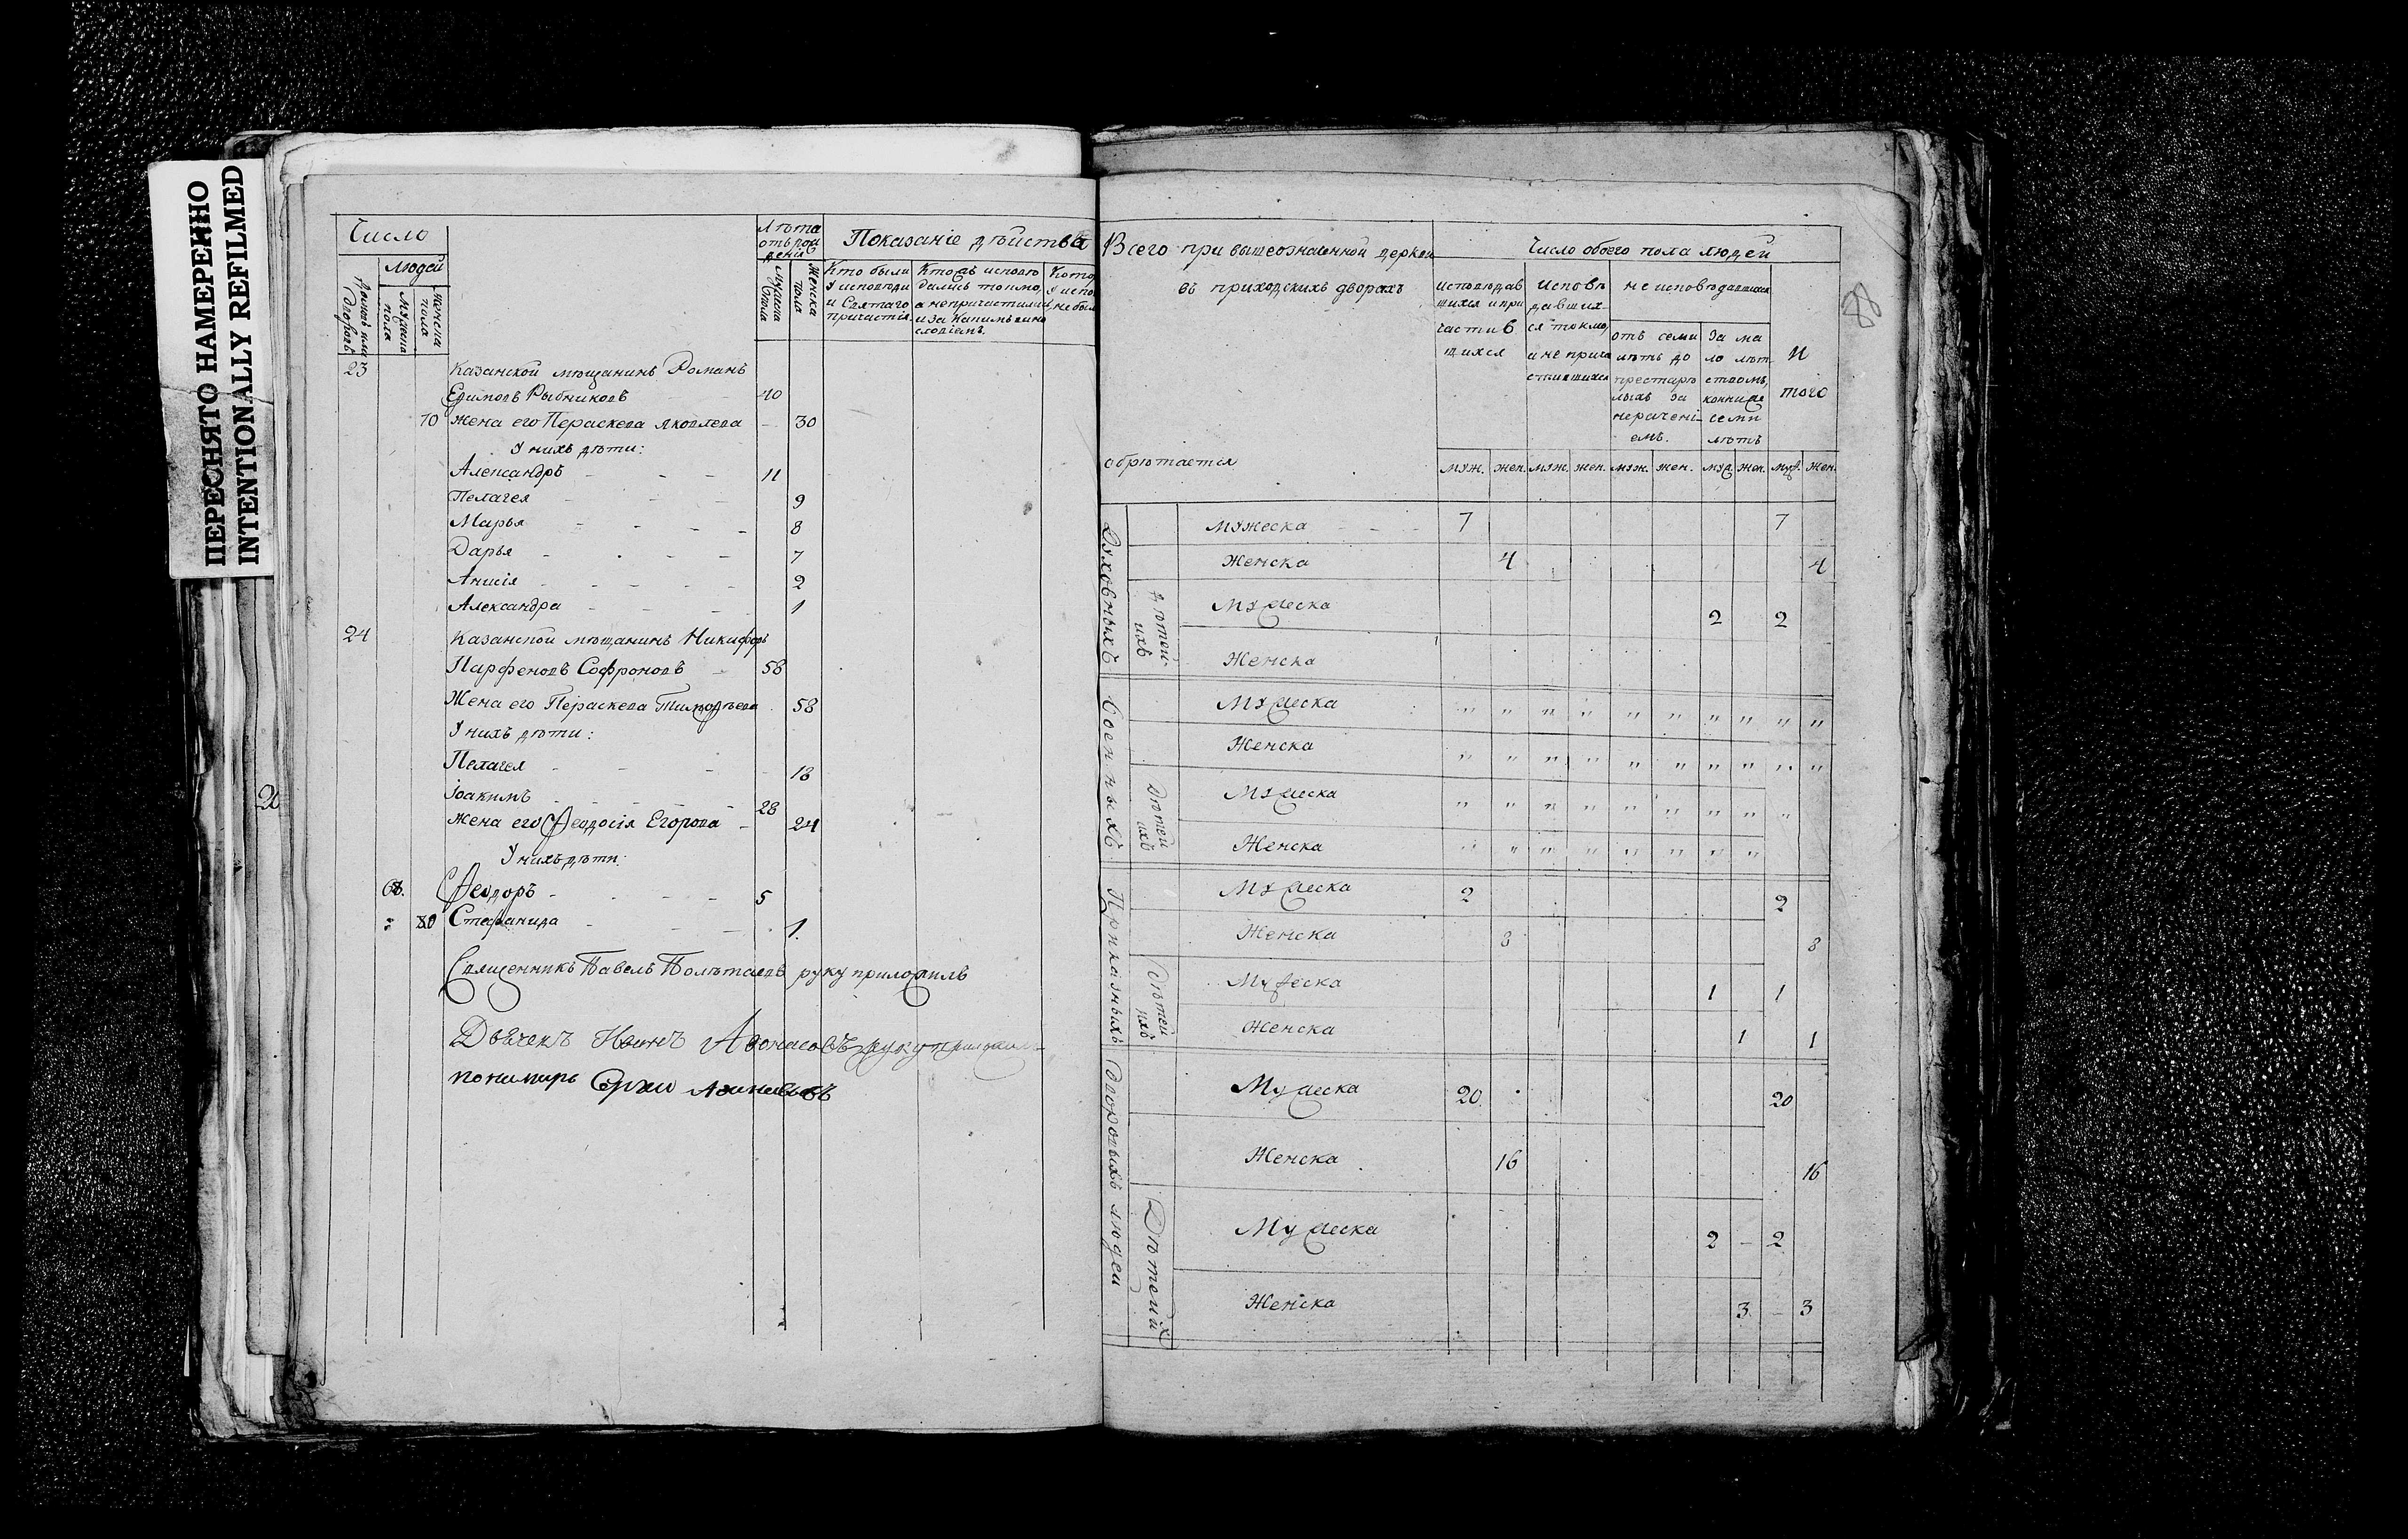 ПЕРЕСНЯТО НАМЕРЕННО
INTENTIONALLY REFILMED
Число
людей
Мужеска пола
женска пола
Лѣта
отъ рож
денія
Мужеска пола
Женска пола
Показаніе дѣйства
Кто были
у исповѣди
и Святаго
причастія.
Кто съ исповѣ
дались токмо,
а непричастились
и за какимъ вино
словіемъ.
Кото
у испо
не был
23
Казанской мѣщанинъ Романъ
Ефимовъ Рыбниковъ 40
70 Жена его Пераскева Яковлева 30
У нихъ дѣти:
Александръ 11
Пелагея 9
Марья 8
Дарья 7
Анисія 2
Александра 1
24 Казанской мѣщанинъ Никифоръ
Парфеновъ Софроновъ 58
Жена его Пераскева Тимофѣева 58
У нихъ дѣти:
Пелагея 18
Іоакимъ 28
Жена его Феодосія Егорова 24
У нихъ дѣти:
Феодоръ 5
Стефанида 1.
Священникъ Павелъ Полѣтаевъ руку приложилъ
руку приложилъ
2
88
Всего при вышеозначенной церкви
въ приходскихъ дворахъ
обрѣтается
Число обоего пола людей
исповѣдав
шихся и при
частив
шихся
исповѣ
давших-
ся токмо,
и не прича
стившихся
не исповѣдавшихся
отъ семи
лѣтъ до
престарѣ
лыхъ за
нерачені-
емъ.
За ма
ло лѣт-
ствомъ,
кои ниже
семи
лѣтъ
И
того
муж. жен. муж. жен. муж. жен. муж. жен. муж. жен.
Духовныхъ
Мужеска 7 7
Женска 4 4
дѣтей ихъ
Мужеска 2 2
Женска
Военныхъ
Мужеска " " " " " " " " " "
Женска " " " " " " " " " "
Дѣтей ихъ
Мужеска " " " " " " " " "
Женска " " " " " " " "
Приказныхъ
Мужеска 2 2
Женска 3 3
Дѣтей ихъ
Мужеска 1 1
Женска 1 1
Дворовыхъ людей
Мужеска 20 20
Женска 16 16
Дѣтей их
Мужеска 2 2
Женска 3 3